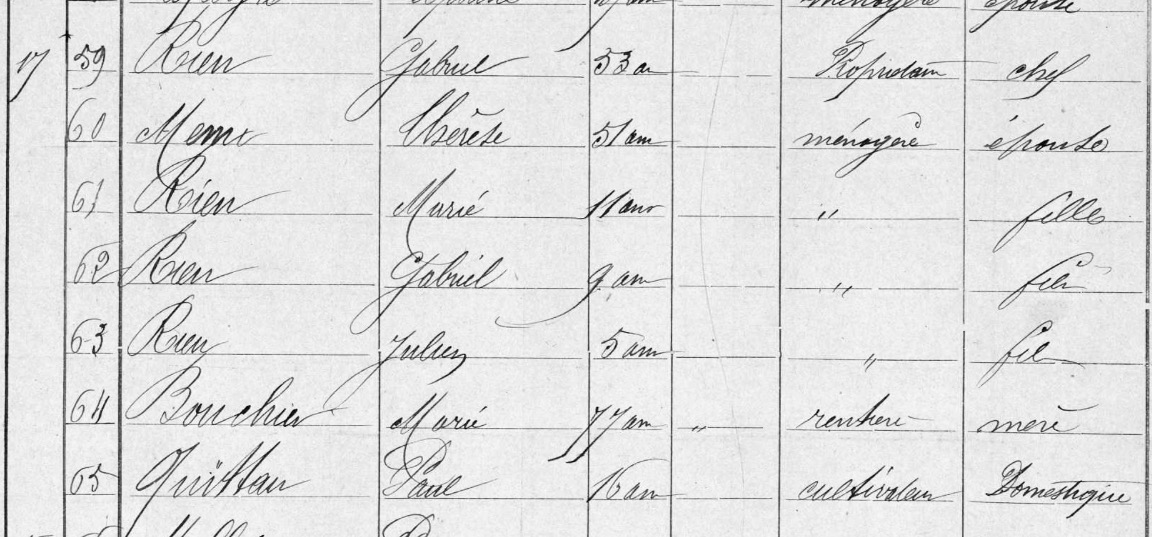 ménagère épouse
17 59 Rieu Gabriel 53 an chef
60 Thérèse 51 ans ménagère épouse
61 Rieu Marie 11 ans " fille
62 Rieu Gabriel 9 ans " fils
63 Rieu Julien 5 ans " fils
64 Bouchier Marie 77 ans " rentière mère
65 Quittau Paul 16 ans cultivateur Domestique